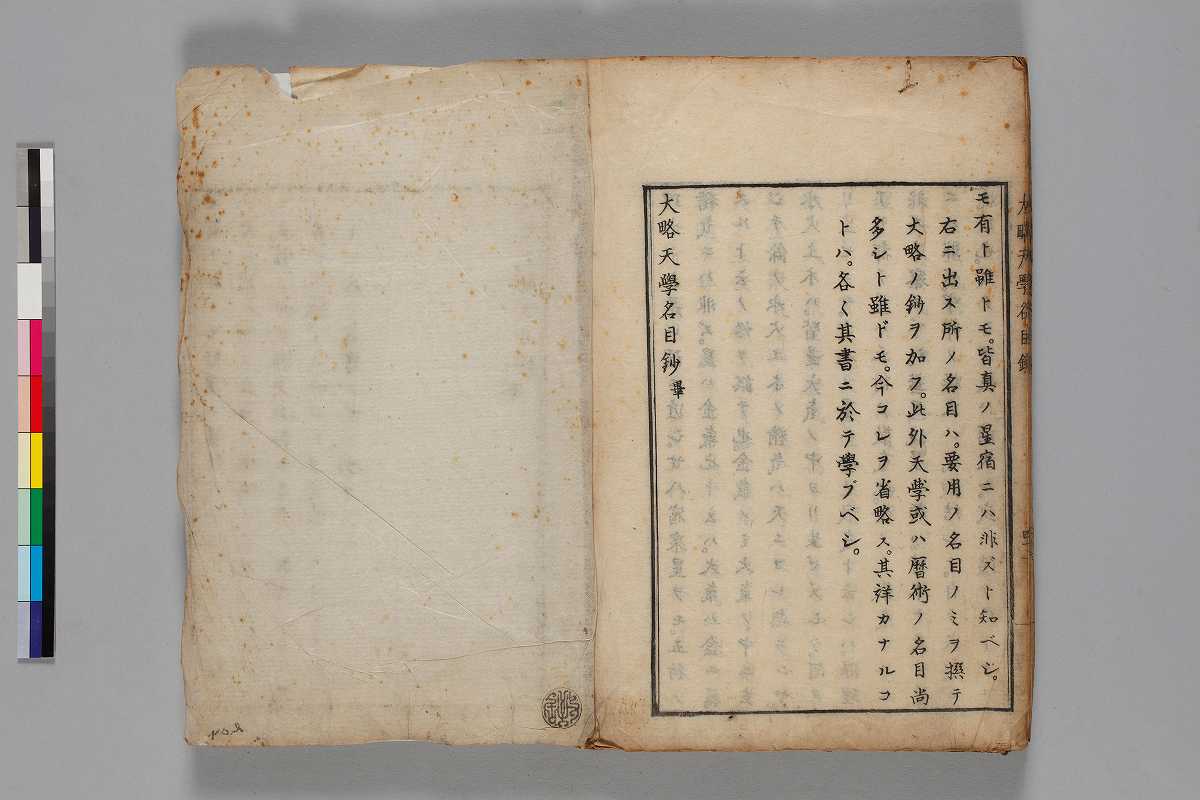 モ有ト雖トモ。皆真ノ星宿ニハ非ズト知ベシ。
右ニ出ス所ノ名目ハ。要用ノ名目ノミヲ撰テ
大略ノ鈔ヲ加フ。此外天學或ハ暦術ノ名目尚
多シト雖ドモ。今コレヲ省略ス。其詳カナルコ
トハ。各〻其書ニ於テ學ブベシ。
大略天學名目鈔畢